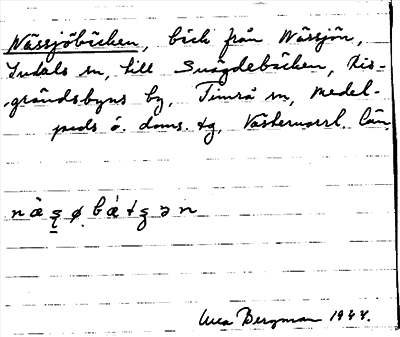 Nässjöbäcken, bäck från Nässjön,
Indals sn, till Snägdebäcken, Ris-
grändsbyns by, Timrå sn, Medel-
pads ö. doms. tg, Västernorrl. län.
Bergman 1944.